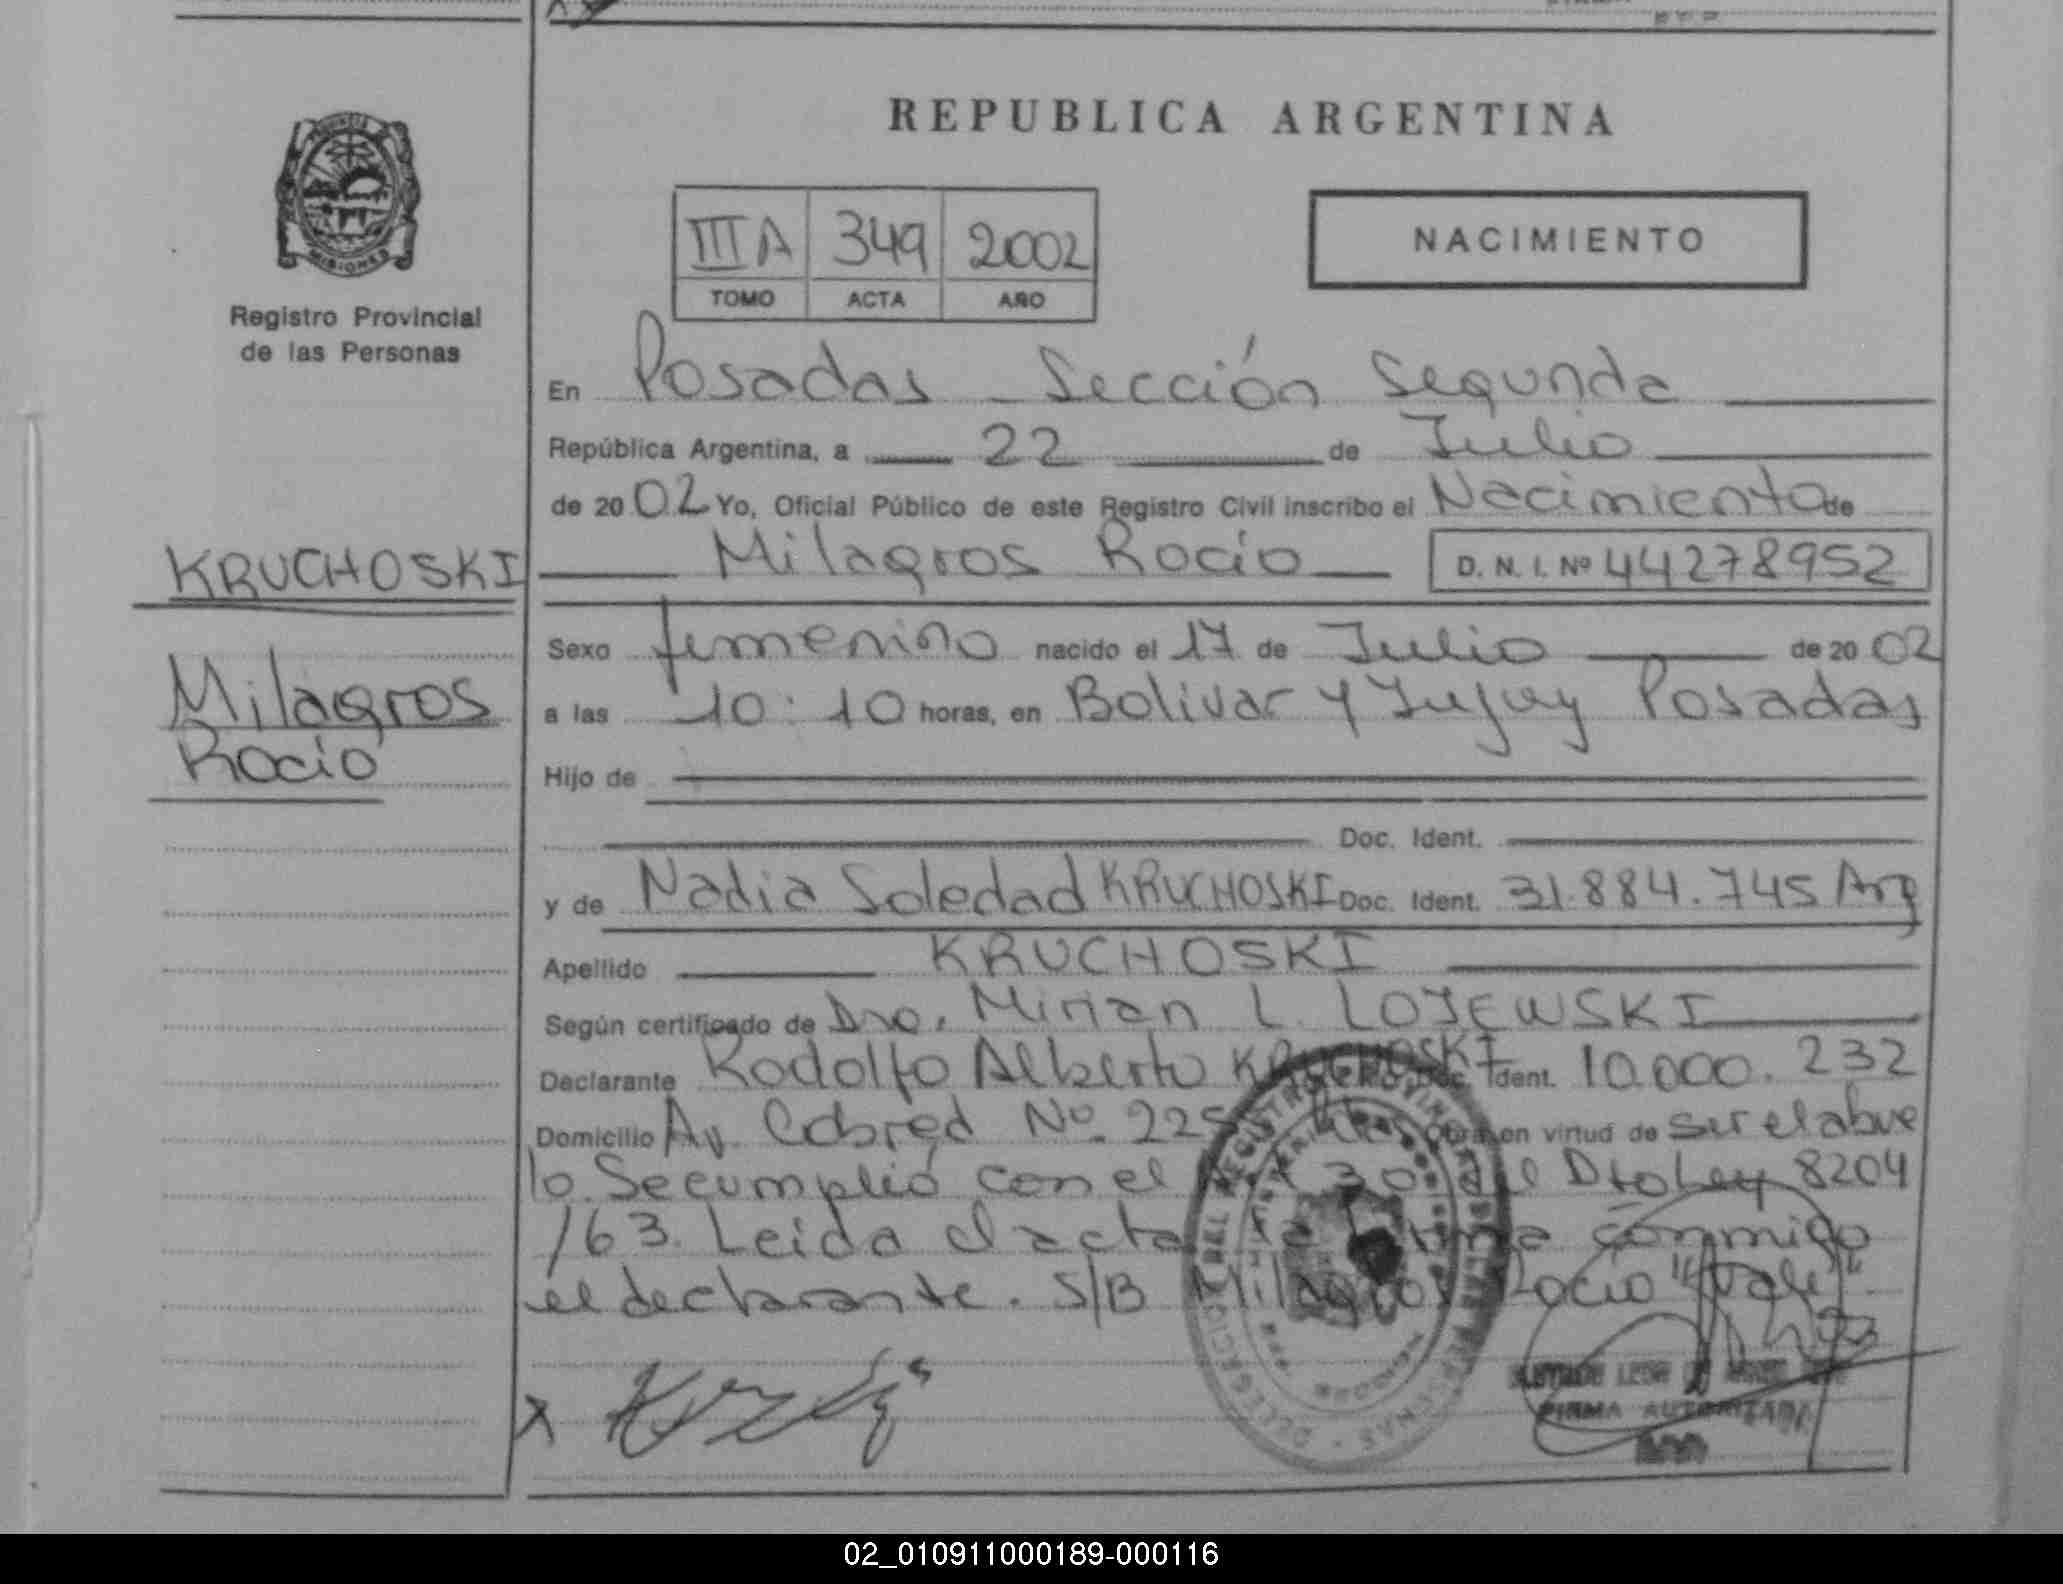 REPUBLICA ARGENTINA
PROVINCIA
MISIONES
Registro Provincial
de las Personas
IIIA 349 2002
TOMO ACTA AÑO
NACIMIENTO
En Posadas - Sección Segunda
República Argentina, a 22 de Julio
de 2002 Yo, Oficial Público de este Registro Civil inscribo el Nacimiento de
Milagros Rocio D. N. I. Nº 44278952
KRUCHOSKI
Milagros
Rocio
Sexo femenino nacido el 17 de Julio de 2002
a las 10:10 horas, en Bolivar y Jujuy Posadas
Hijo de
Doc. Ident.
y de Nadia Soledad KRUCHOSKI Doc. Ident. 31.884.745 Arg
Apellido KRUCHOSKI
Según certificado de Dra. Mirian L. LOJEWSKI
Declarante Rodolfo Alberto KRUCHOSKI Doc. Ident. 10.000.232
Domicilio Av. Cabred Nº 225 Obra en virtud de ser el abue
lo. Se cumplió con el 30 del Dto Ley 8204
/63. Leida el acta la firma conmigo
el declarante. S/B Milagros Rocio "Vale".
X
FIRMA AUTORIZADA
02_010911000189-000116